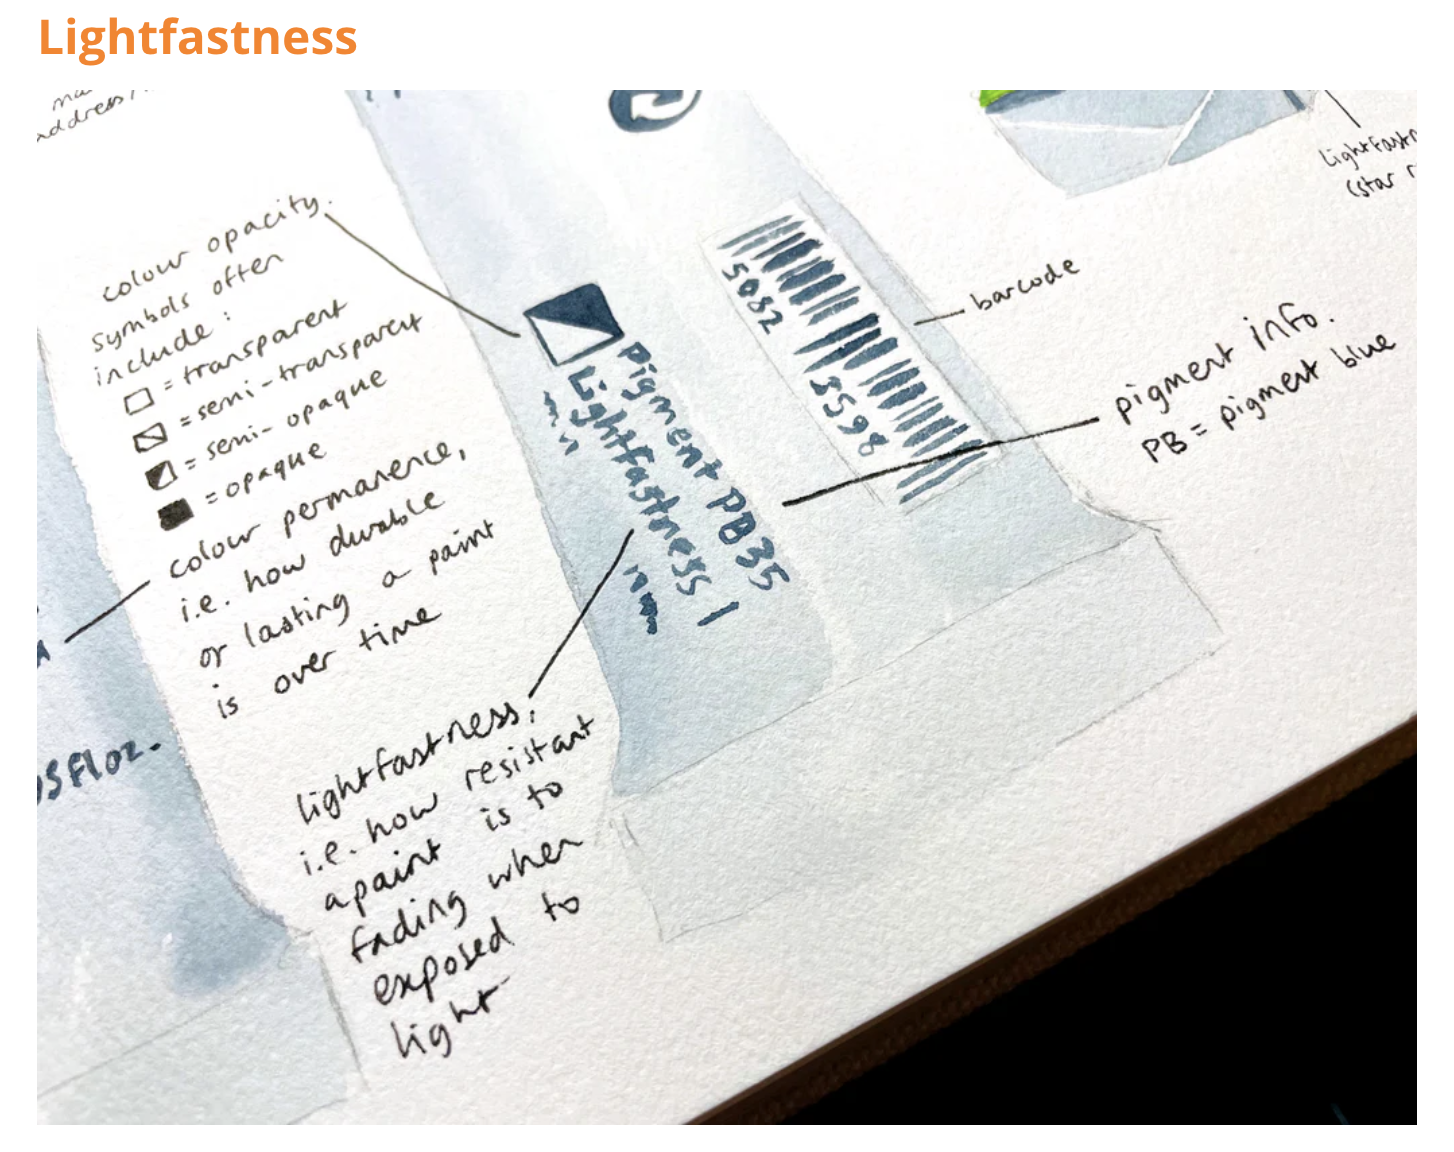 Lightfastness
address/
colour opacity.
symbols often
include:
= transparent
= semi-transparent
= semi-opaque
= opaque
colour permanence,
i.e. how durable
or lasting a paint
is over time
5floz.
lightfastness,
i.e. how resistant
a paint is to
fading when
exposed to
light
Pigment PB35
Lightfastness I
5082
3598
barcode
pigment info.
PB = pigment blue
Lightfastn
(star r